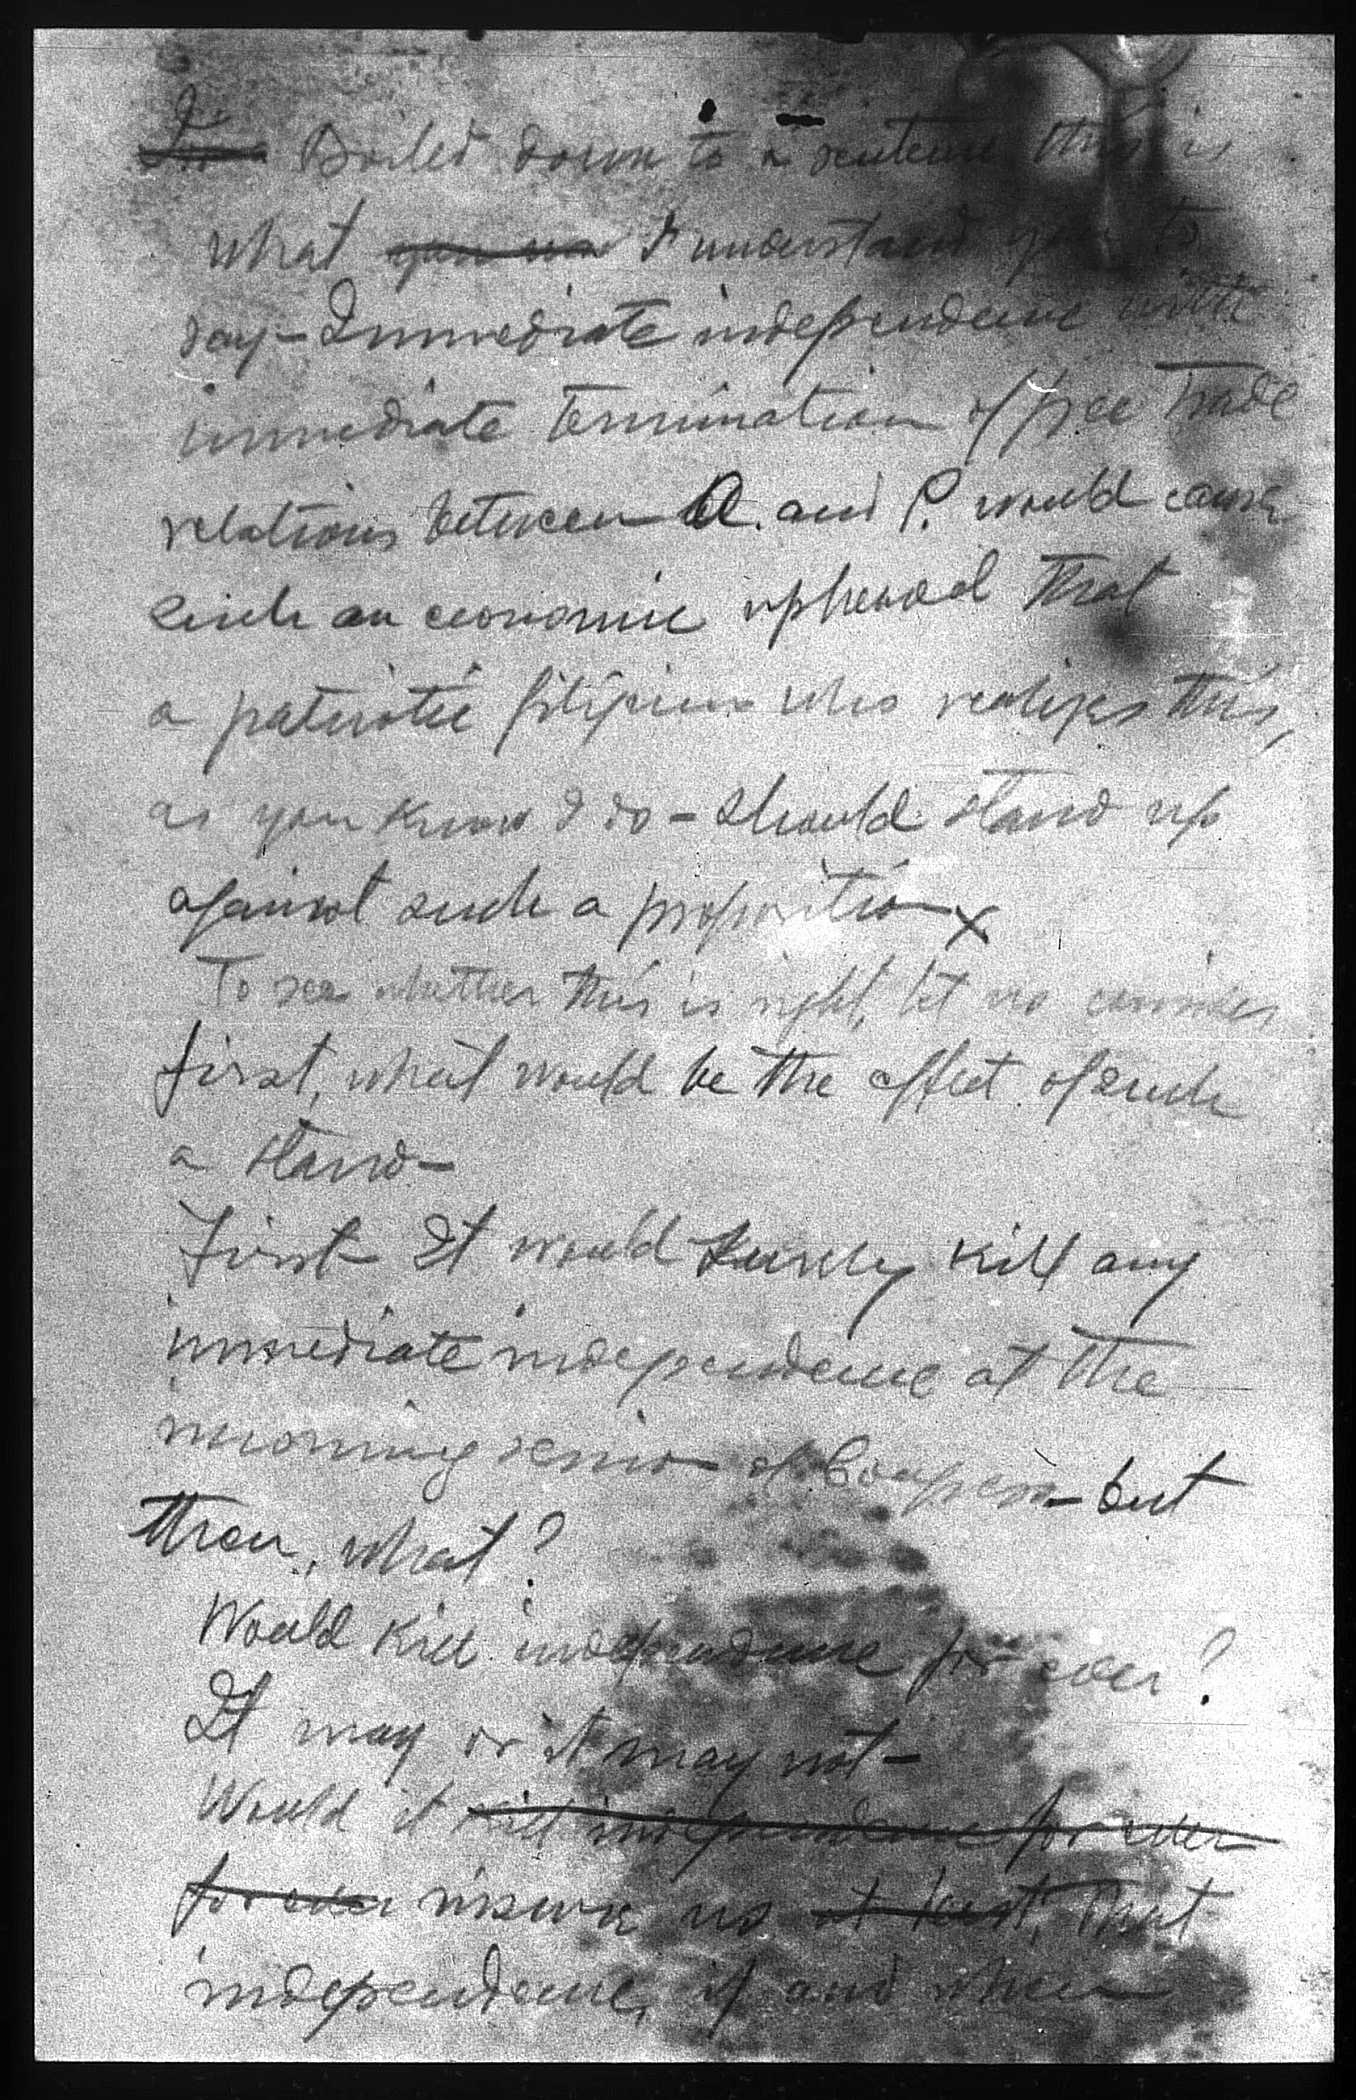 Boiled down to a sentence this is
what I understand you to
say – Immediate independence with
immediate termination of free trade
relations between A. and P. would cause
such an economic upheaval that
a patriotic filipino who realizes this,
as you know I do – should stand up
against such a proposition x
To see whether this is right, let us consider
first, what would be the effect of such
a stand –
First – It would surely kill any
immediate independence at the
incoming session of Congress – but
then, what?
Would kill independence for ever?
It may or it may not –
Would it kill independence for ever
for ever insure us at least, that
independence, if and when